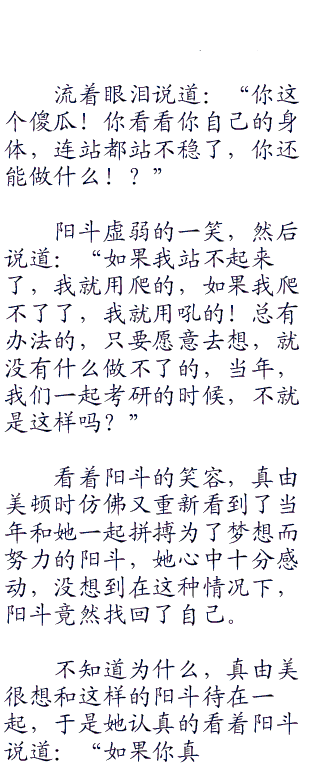 流着眼泪说道：“你这
个傻瓜！你看看你自己的身
体，连站都站不稳了，你还
能做什么！？”
阳斗虚弱的一笑，然后
说道：“如果我站不起来
了，我就用爬的，如果我爬
不了了，我就用吼的！总有
办法的，只要愿意去想，就
没有什么做不了的，当年，
我们一起考研的时候，不就
是这样吗？”
看着阳斗的笑容，真由
美顿时仿佛又重新看到了当
年和她一起拼搏为了梦想而
努力的阳斗，她心中十分感
动，没想到在这种情况下，
阳斗竟然找回了自己。
不知道为什么，真由美
很想和这样的阳斗待在一
起，于是她认真的看着阳斗
说道：“如果你真